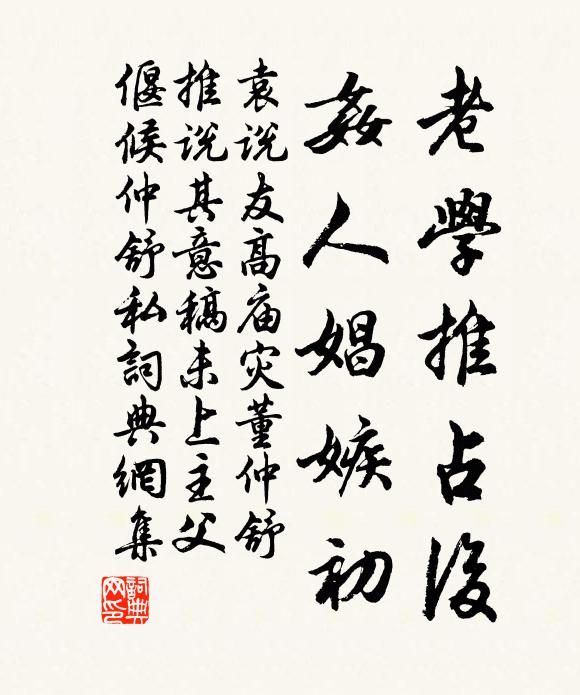 老學推占後
姦人娼嫉初
袁说友高庙灾董仲舒
推说其意稿未上主父
偃候仲舒私詞典網集
詞典网印